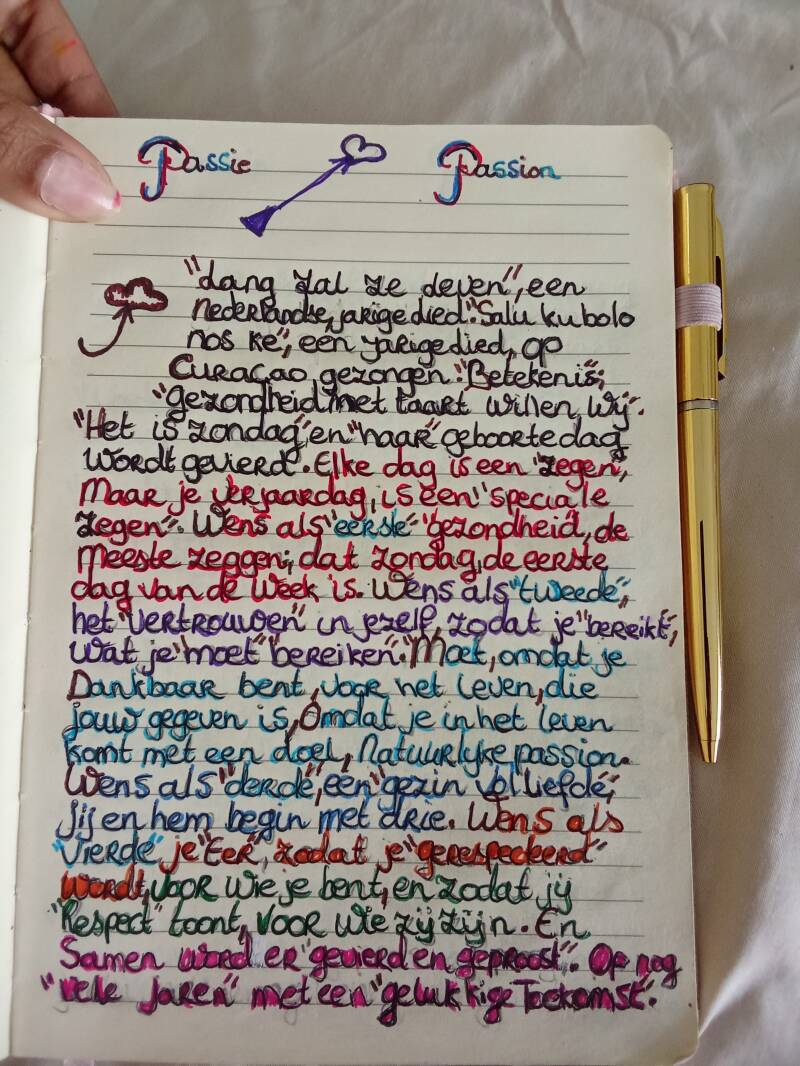 Passie Passion
"Lang zal ze leven", een
Nederlandse, jarige lied. "Salu ku bolo
nos ke", een jarige lied, op
Curaçao gezongen. "Betekenis;
"gezondheid met taart willen wij.
"Het is zondag" en "haar" geboortedag
wordt gevierd. Elke dag is een "zegen",
Maar je verjaardag, is een "speciale
zegen". Wens als "eerste" "gezondheid, de
meeste zeggen; dat zondag, de eerste
dag van de week is. Wens als "tweede",
het "vertrouwen" in jezelf, zodat je "bereikt",
wat je "moet" bereiken". Moet, omdat je
Dankbaar bent, voor het leven, die
jouw gegeven is, Omdat je in het leven
komt met een doel, Natuurlyke passion.
Wens als "derde", een "gezin vol liefde,"
Jij en hem begin met drie. Wens als
"Vierde" je "Eer", zodat je "gerespecteerd"
wordt, voor wie je bent, en zodat jij
"Respect" toont, voor wie zij zijn. En
Samen word er "gevierd en geproost". Op nog
"vele jaren" met een "gelukkige Toekomst".